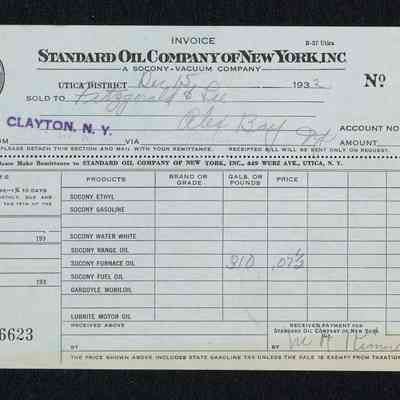 INVOICE
B-37 Utica
STANDARD OIL COMPANY OF NEW YORK, INC.
A SOCONY-VACUUM COMPANY
UTICA DISTRICT Dec 15 193
No
SOLD TO Fitzgerald & Lee
Alex Bay NY
CLAYTON, N. Y.
ACCOUNT NO
OM VIA AMOUNT
PLEASE DETACH THIS SECTION AND MAIL WITH YOUR REMITTANCE. RECEIPTED BILL WILL BE SENT ONLY ON REQUEST.
Please Make Remittance to STANDARD OIL COMPANY OF NEW YORK, INC., AVE, UTICA, N. Y.
PRODUCTS BRAND OR GRADE GALS. OR POUNDS PRICE
1% 10 DAYS
SOCONY ETHYL
SOCONY GASOLINE
SOCONY WATER WHITE
193
SOCONY RANGE OIL
SOCONY FURNACE OIL 310 .07½
SOCONY FUEL OIL
GARGOYLE MOBILOIL
193
LUBRITE MOTOR OIL
6623
RECEIVED ABOVE
RECEIVED PAYMENT FOR
STANDARD OIL COMPANY OF NEW YORK
BY
BY
THE PRICE SHOWN ABOVE INCLUDES STATE GASOLINE TAX UNLESS THE SALE IS EXEMPT FROM TAXATION